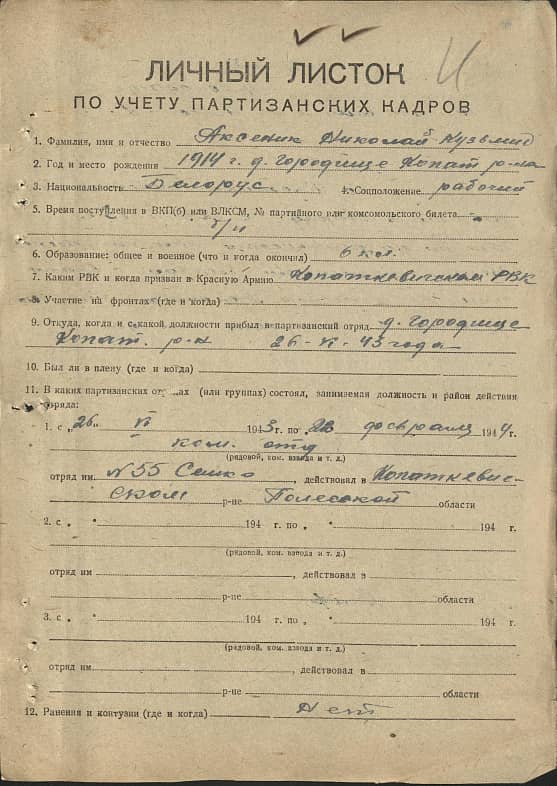 ЛИЧНЫЙ ЛИСТОК
ПО УЧЕТУ ПАРТИЗАНСКИХ КАДРОВ
1. Фамилия, имя и отчество Аксеник Николай Кузьмич
2. Год и место рождения 1914 г. д. Городище Копат р-на
3. Национальность Белорус 4. Соцположение рабочий
5. Время поступления в ВКП(б) или ВЛКСМ, № партийного или комсомольского билета
б/п
6. Образование: общее и военное (что и когда окончил) 6 кл.
7. Каким РВК и когда призван в Красную Армию Копаткевичским РВК
8. Участие на фронтах (где и когда)
9. Откуда, когда и с какой должности прибыл в партизанский отряд д. Городище
Копат. р-н 26-VI-43 года
10. Был ли в плену (где и когда)
11. В каких партизанских отрядах (или группах) состоял, занимаемая должность и район действия
отряда:
1. с „26" VI 1943 г. по февраля 1944 г.
ком. отд
(рядовой, ком. взвода и т. д.)
отряд им. N 55 , действовал в Копаткевич-
ском р-не Полесской области
2. с „ " 194 г. по „ " 194 г.
(рядовой, ком. взвода и т. д.)
отряд им. , действовал в
р-не области
3. с „ " 194 г. по „ " 194 г.
(рядовой, ком. взвода и т. д.)
отряд им. , действовал в
р-не области
12. Ранения и контузии (где и когда) Нет